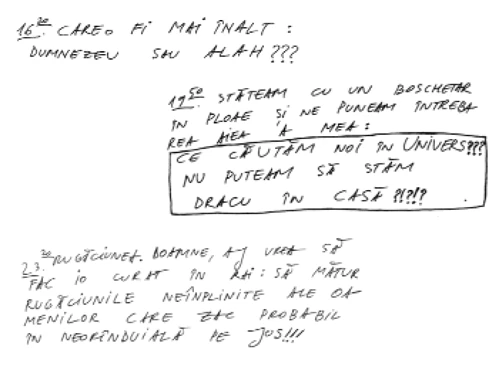 16²⁰ CAREO FI MAI ÎNALT :
DUMNEZEU SAU ALAH ???
19⁵⁰. STĂTEAM CU UN BOSCHETAR
ÎN PLOAE ȘI NE PUNEAM ÎNTREBA
REA AIEA A MEA :
CE CĂUTĂM NOI ÎN UNIVERS???
NU PUTEAM SĂ STĂM
DRACU ÎN CASĂ ?!?!?
23²⁰ RUGĂCIUNEA. DOAMNE, AȘ VREA SĂ
FAC IO CURAT ÎN RAI : SĂ MĂTUR
RUGĂCIUNILE NEÎNPLINITE ALE OA-
MENILOR CARE ZAC PROBABIL
ÎN NEORÎNDUIALĂ PE JOS!!!